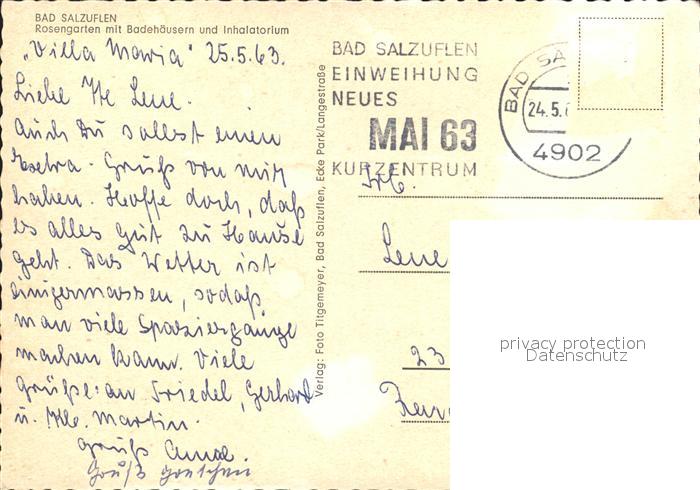 BAD SALZUFLEN
Rosengarten mit Badehäusern und Inhalatorium
"Villa Maria" 25.5.63.
Liebe Lene.
Auch Du sollst einen
Extra-Gruß von mir
haben. Hoffe doch, daß
es alles gut zu Hause
geht. Das Wetter ist
einigermassen, sodaß
man viele Spaziergänge
machen kann. Viele
Grüße an Friedel, Gerhard
u. Martin.
Gruß Anna.
Gruß Gretchen
Verlag: Foto Titgemeyer, Bad Salzuflen, Ecke Park/Langestraße
BAD SALZUFLEN
EINWEIHUNG
NEUES
MAI 63
KURZENTRUM
BAD SA
24.5.6
4902
Frl.
Lene
23
privacy protection
Datenschutz